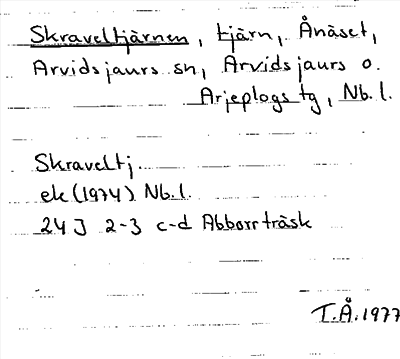 Skraveltjärnen, tjärn, Ånäset,
Arvidsjaurs sn, Arvidsjaurs o.
Arjeplogs tg, Nb.l.
Skraveltj.
ek (1974) Nb.l.
24J 2-3 c-d Abborrträsk
T.Å.1977